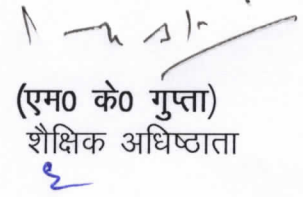 (एम0 के0 गुप्ता)
शैक्षिक अधिष्ठाता